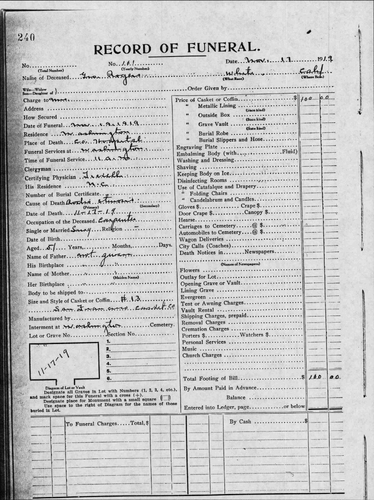 240
RECORD OF FUNERAL.
No. No. 101 Date Nov. 17 1919
(Total Number) (Yearly Number)
Name of Deceased Geo Rogers White Calif
Wife--Widow (What Race) (Where Born)
Son--Daughter of Order Given by
Charge to
Address
How Secured
Date of Funeral Nov 19 1919
Residence Washington
Place of Death Co. Hospital
Funeral Services at Washington
Time of Funeral Service 11 A.M.
Clergyman
Certifying Physician
His Residence N.C.
Number of Burial Certificate
Cause of Death
(Primary)
Date of Death 11-17-19
Occupation of the Deceased Carpenter
Single or Married Sing Religion
Date of Birth
Aged 51 Years, Months, Days
Name of Father not given
His Birthplace
Name of Mother
(Maiden Name)
Her Birthplace
Body to be shipped to
Size and Style of Casket or Coffin #13
San Francisco Casket Co
Manufactured by
Interment at Washington Cemetery.
Lot or Grave No. Section No.
1.
2.
3.
4.
5.
6.
11-17-19
Diagram of Lot or Vault
Designate all Graves in Lot with Numbers (1, 2, 3, 4, etc.),
and mark space for this Funeral with a cross (+).
Designate place for Monument with a small square
Use space to the right of Diagram for the names of those
buried in Lot.
Price of Casket or Coffin $100 00
" Metallic Lining
(State kind)
" Outside Box
(State kind)
" Grave Vault
(State kind)
" Burial Robe
" Burial Slippers and Hose
Engraving Plate
Embalming Body (with Fluid)
Washing and Dressing
Shaving
Keeping Body on Ice
Disinfecting Rooms
Use of Catafalque and Drapery
" Folding Chairs
" Candelabrum and Candles
Gloves $ Crape $
Door Crape $ Canopy $
Hearse
Carriages to Cemetery @ $
Automobiles to Cemetery @ $
Wagon Deliveries
City Calls (Coaches)
Death Notices in Newspapers
(Names of Newspapers)
Flowers
Outlay for Lot
Opening Grave or Vault
Lining Grave
Evergreen
Tent or Awning Charges
Vault Rental
Shipping Charges, prepaid
Removal Charges
Cremation Charges
Porters $ Watchers $
Personal Services
Music
Church Charges
Total Footing of Bill $100 00
By Amount Paid in Advance
Balance
Entered into Ledger, page or below
To Funeral Charges, Total By Cash